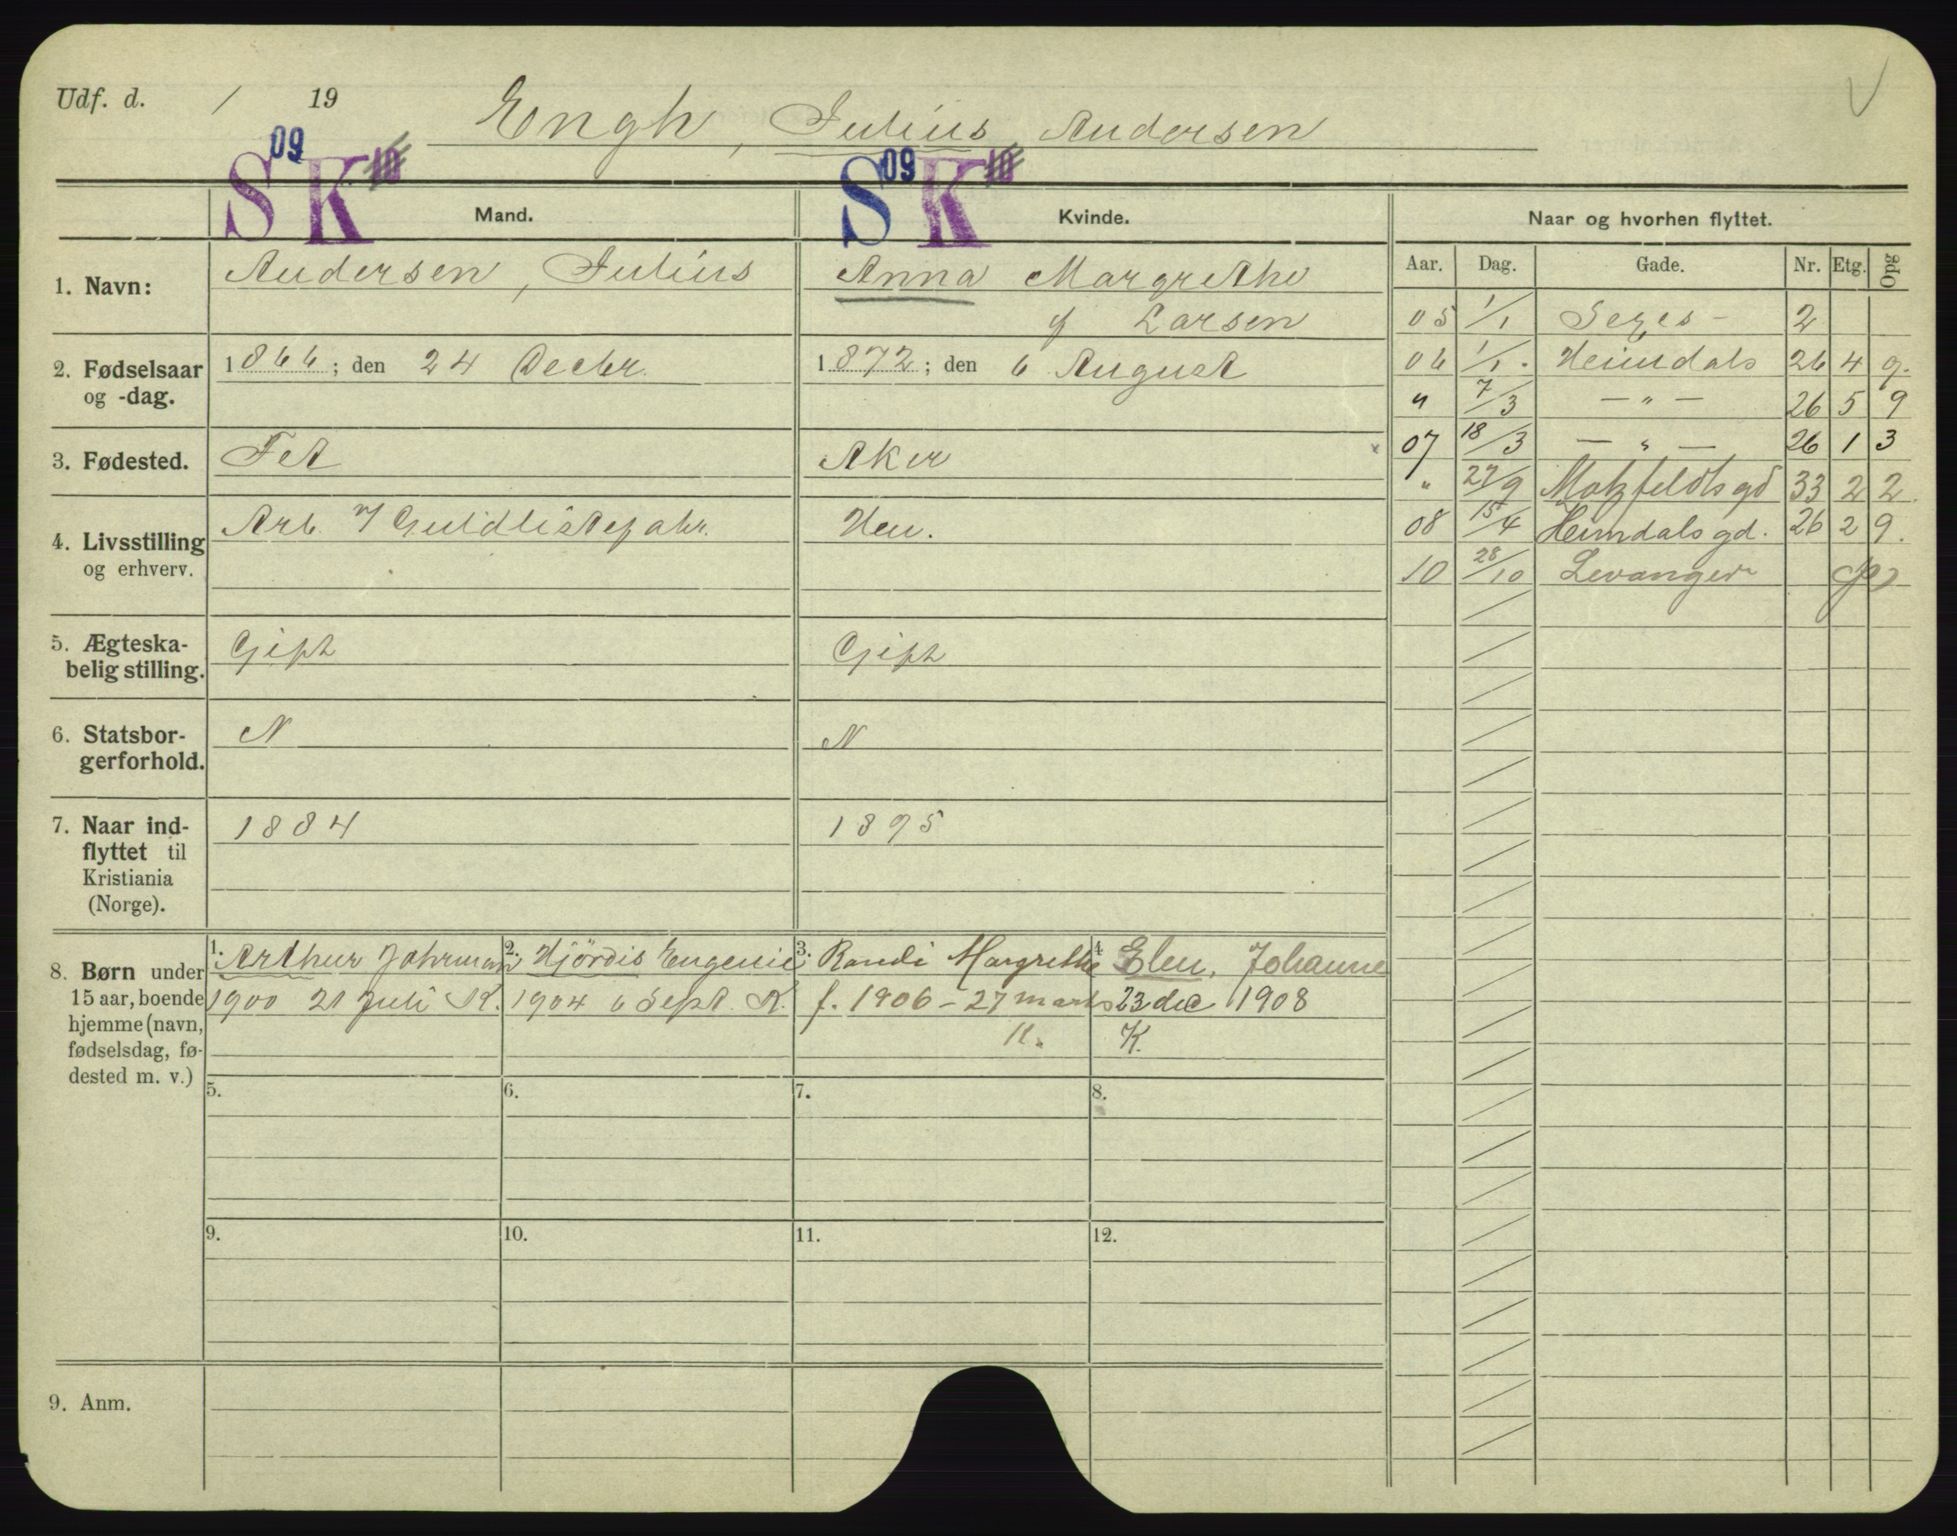 Udf. d. / 19
Engh, Julius Andersen
S 09 K 10 Mand. S 09 K 10 Kvinde. Naar og hvorhen flyttet.
Aar. Dag. Gade. Nr. Etg. Opg
1. Navn: Andersen, Julius
Anna Margrethe
f Larsen
2. Fødselsaar og -dag.
1866; den 24 Decbr.
1872; den 6 August
3. Fødested. Fet
Aker
4. Livsstilling og erhverv.
Arb. Guldlistefabr.
Hu.
5. Ægteska-
belig stilling.
Gift
Gift
6. Statsbor-
gerforhold.
N
N
7. Naar ind-
flyttet til
Kristiania
(Norge).
1884
1895
8. Børn under
15 aar, boende
hjemme (navn,
fødselsdag, fø-
dested m. v.)
1. Arthur Johrman
1900 21 Juli K.
2. Hjördis Eugenie
1904 6 Sept. K.
3. Randi Margrethe
f. 1906 - 27 marts
K.
4. Elen, Johanne
23 dec 1908
K.
5.
6.
7.
8.
9.
10.
11.
12.
9. Anm.
05 1/1 Seges - 2
06 1/1. Heimdals 26 4 9.
" 7/3 — " — 26 5 9
07 18/3 — " — 26 1 3
" 27/9 Motzfeldts gd 33 2 2.
08 15/4 Heimdals gd. 26 2 9.
10 28/10 Levanger